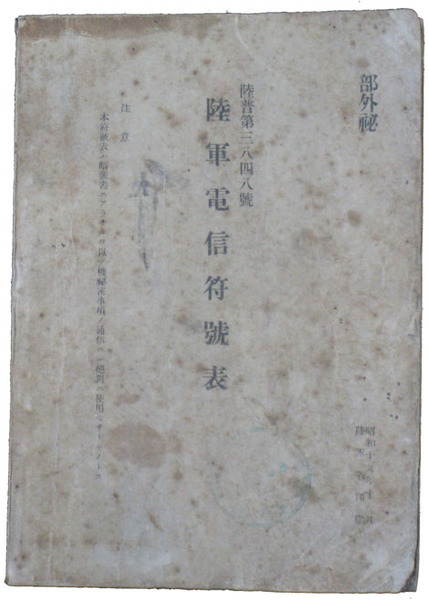 部外祕
陸普第三八四八號
陸軍電信符號表
注意
本符號表ハ暗號書ニアラサルヲ以テ機祕密事項ノ通信ニハ絕對ニ使用スヘカラサルモノトス
昭和十五年十月
陸軍省